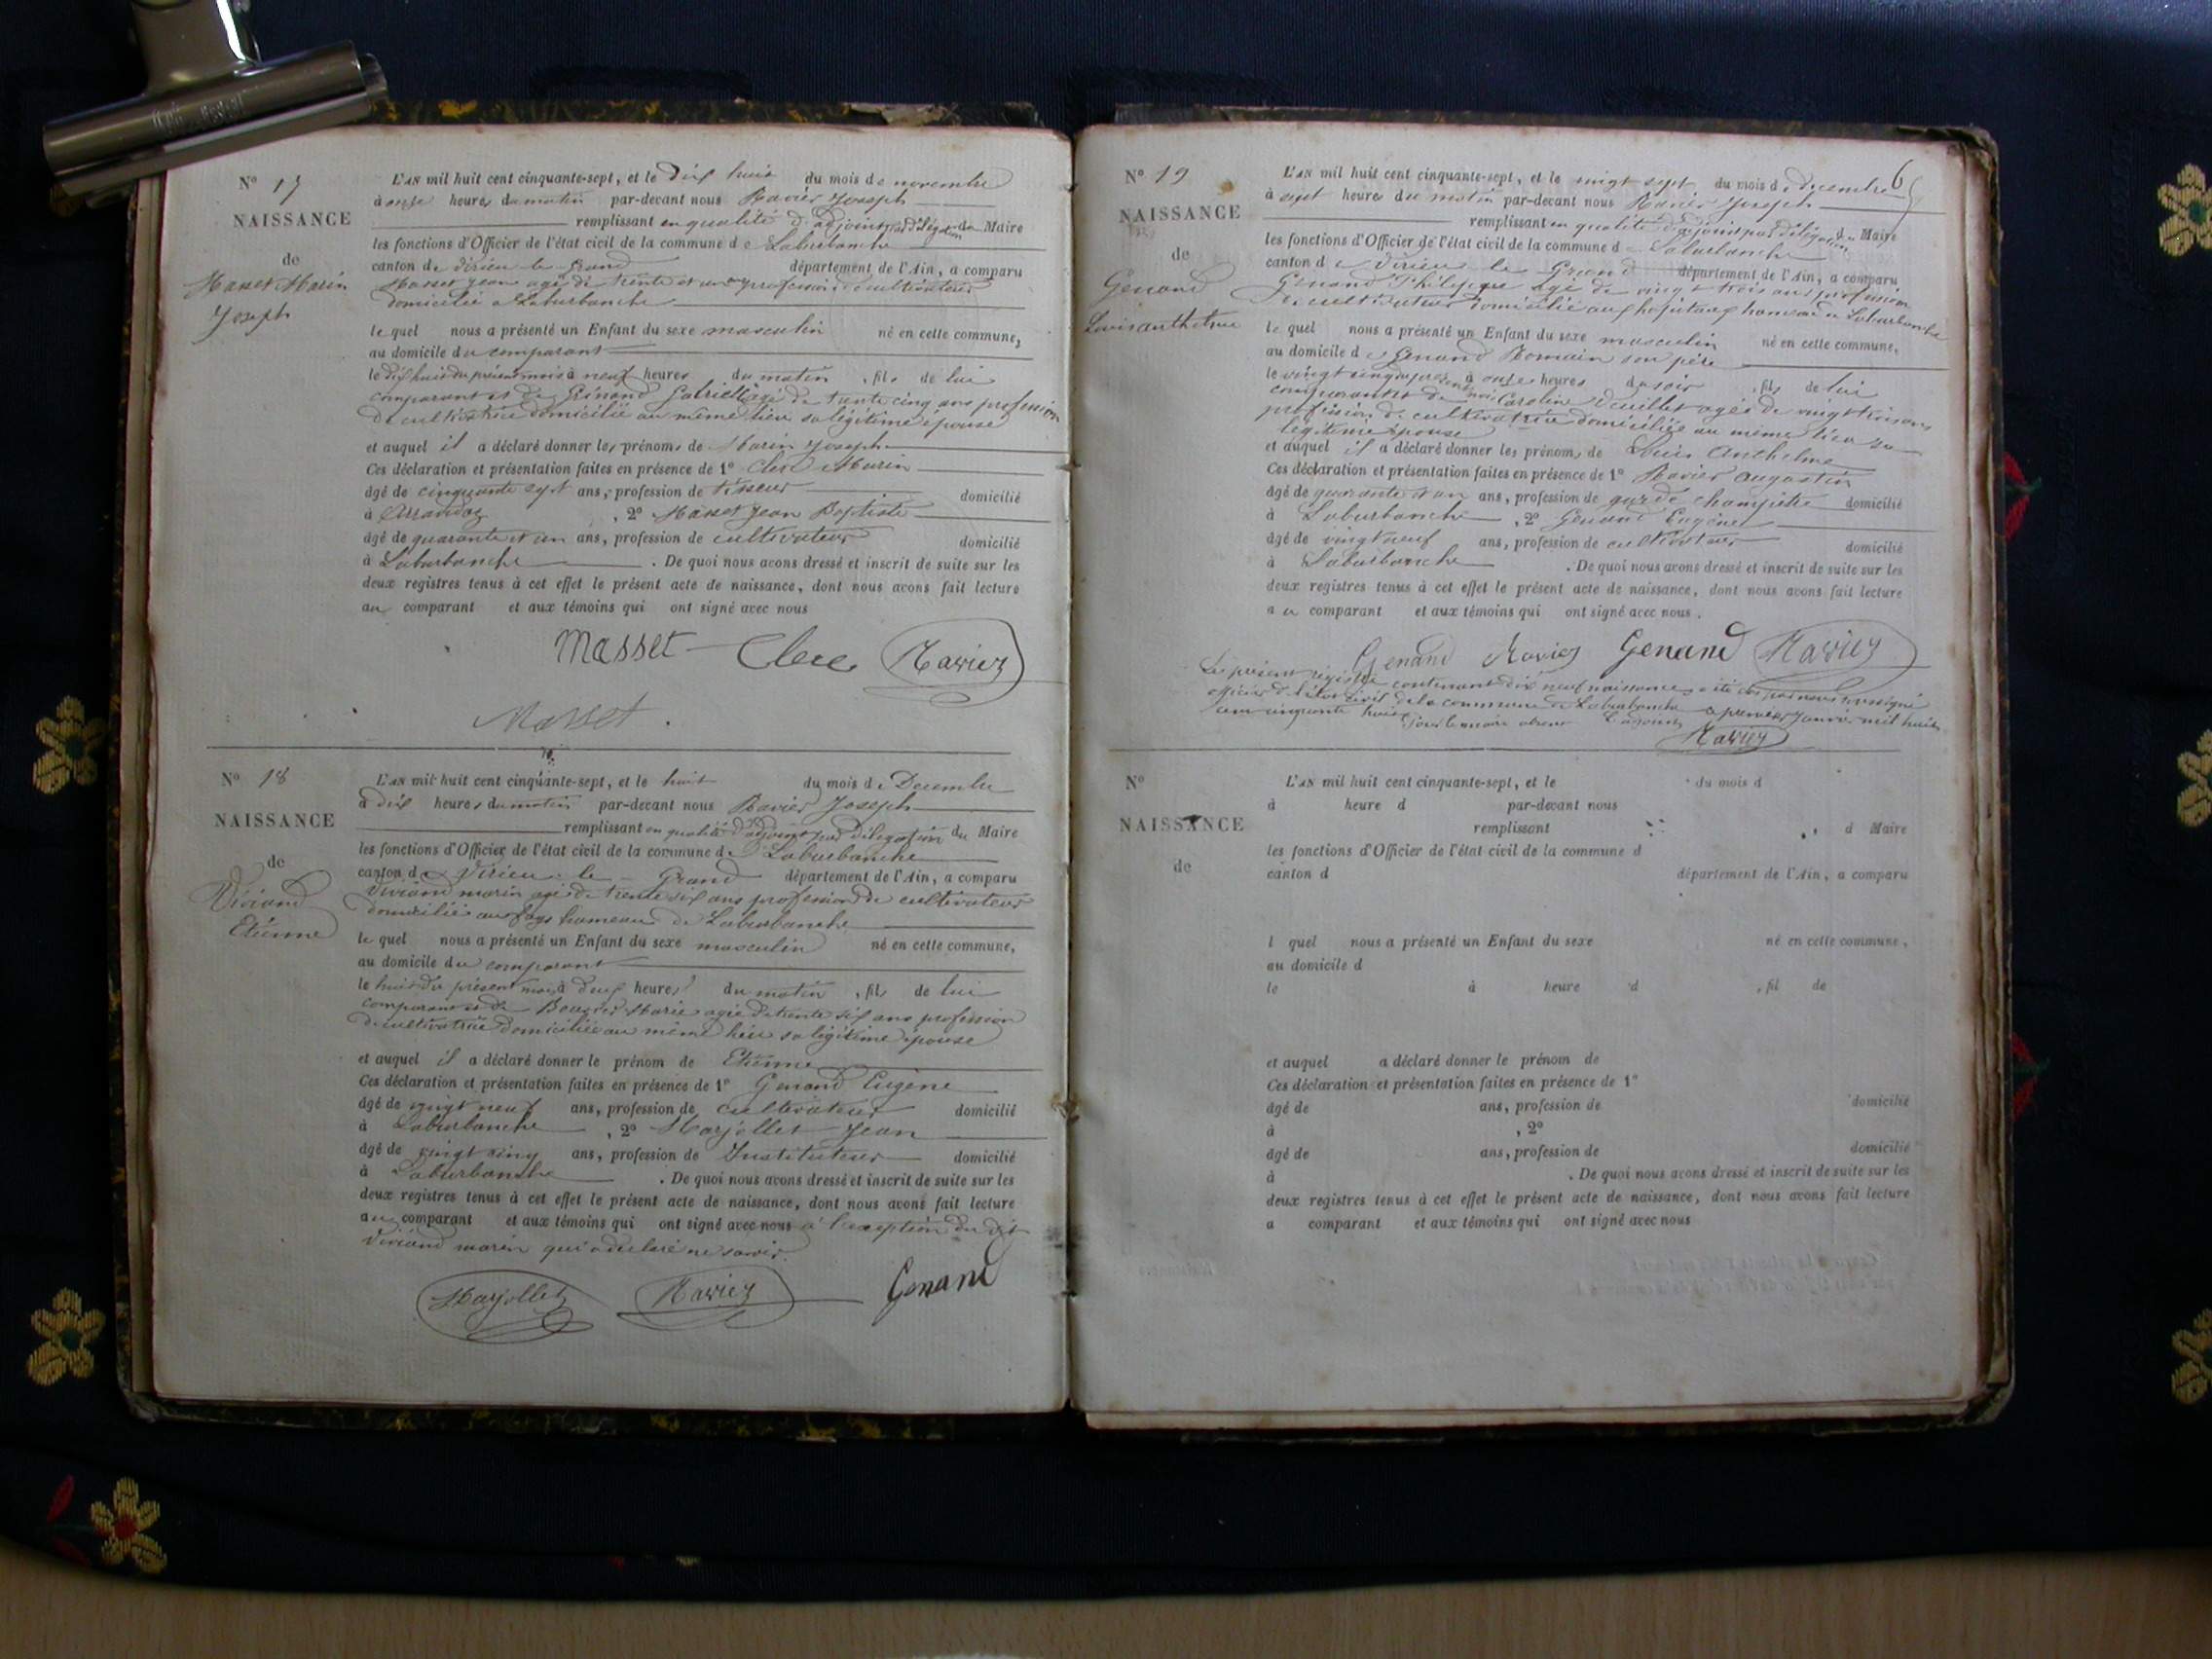 N° 17
NAISSANCE
de
Masset Marin
Joseph
L'AN mil huit cent cinquante-sept, et le dix huit du mois de novembre
à onze heures du matin par-devant nous Ravier Joseph
remplissant en qualité d'adjoint par délégation du Maire
les fonctions d'Officier de l'état civil de la commune de Laburbanche
canton de Virieu le Grand département de l'Ain, a comparu
Masset Jean agé de trente et un ans profession de cultivateur
domicilié à Laburbanche
lequel nous a présenté un Enfant du sexe masculin né en cette commune,
au domicile du comparant
le dix huit du présent mois à neuf heures du matin, fils de lui
comparant et de Grinand Gabrielle agé de trente cinq ans profession
de cultivatrice domiciliée au même lieu sa légitime épouse
et auquel il a déclaré donner les prénoms de Marin Joseph
Ces déclaration et présentation faites en présence de 1° Clerc Marin
âgé de cinquante sept ans, profession de tisseur domicilié
à Arrandas, 2° Masset Jean Baptiste
âgé de quarante et un ans, profession de cultivateur domicilié
à Laburbanche. De quoi nous avons dressé et inscrit de suite sur les
deux registres tenus à cet effet le présent acte de naissance, dont nous avons fait lecture
au comparant et aux témoins qui ont signé avec nous
Masset Clerc Ravier
Masset
N° 18
NAISSANCE
de
Viviand
Etienne
L'AN mil huit cent cinquante-sept, et le huit du mois de Decembre
à dix heures du matin par-devant nous Ravier Joseph
remplissant en qualité d'adjoint par délégation du Maire
les fonctions d'Officier de l'état civil de la commune de Laburbanche
canton de Virieu le Grand département de l'Ain, a comparu
Viviand marin agé de trente six ans profession de cultivateur
domicilié au hameau de Laburbanche
lequel nous a présenté un Enfant du sexe masculin né en cette commune,
au domicile du comparant
le huit du présent mois à deux heures du matin, fils de lui
comparant et de Marie agée de trente six ans profession
de cultivatrice domiciliée au même lieu sa légitime épouse
et auquel il a déclaré donner le prénom de Etienne
Ces déclaration et présentation faites en présence de 1° Genand Eugène
âgé de vingt neuf ans, profession de cultivateur domicilié
à Laburbanche, 2° Marjollet Jean
âgé de vingt cinq ans, profession de Instituteur domicilié
à Laburbanche. De quoi nous avons dressé et inscrit de suite sur les
deux registres tenus à cet effet le présent acte de naissance, dont nous avons fait lecture
au comparant et aux témoins qui ont signé avec nous à l'exception du dit
Viviand marin qui a déclaré ne savoir.
Marjollet Ravier Genand
6
N° 19
NAISSANCE
de
Genand
Louis anthelme
L'AN mil huit cent cinquante-sept, et le vingt sept du mois de decembre
à sept heures du matin par-devant nous Ravier Joseph
remplissant en qualité d'adjoint par délégation du Maire
les fonctions d'Officier de l'état civil de la commune de Laburbanche
canton de Virieu le Grand département de l'Ain, a comparu
Genand Philippe agé de vingt trois ans profession
de cultivateur domicilié aux hopitaux hameau de Laburbanche
lequel nous a présenté un Enfant du sexe masculin né en cette commune,
au domicile de Genand Romain son père
le vingt cinq du présent mois à onze heures du soir, fils de lui
comparant et de Caroline Vuillet agée de vingt trois ans
profession de cultivatrice domiciliée au même lieu sa
légitime épouse
et auquel il a déclaré donner les prénoms de Louis Anthelme
Ces déclaration et présentation faites en présence de 1° Ravier Augustin
âgé de quarante et un ans, profession de garde champêtre domicilié
à Laburbanche, 2° Genand Eugène
âgé de vingt neuf ans, profession de cultivateur domicilié
à Laburbanche. De quoi nous avons dressé et inscrit de suite sur les
deux registres tenus à cet effet le présent acte de naissance, dont nous avons fait lecture
au comparant et aux témoins qui ont signé avec nous.
Genand Ravier Genand Ravier
Le présent registre contenant dix neuf naissances a été clos par nous soussigné
officier de l'état civil de la commune de Laburbanche le premier Janvier mil huit
cent cinquante huit Pour le maire absent L'adjoint
Ravier
N°
NAISSANCE
de
L'AN mil huit cent cinquante-sept, et le du mois d
à heure d par-devant nous
remplissant d Maire
les fonctions d'Officier de l'état civil de la commune d
canton d département de l'Ain, a comparu
l quel nous a présenté un Enfant du sexe né en cette commune,
au domicile d
le à heure d , fil de
et auquel a déclaré donner le prénom de
Ces déclaration et présentation faites en présence de 1°
âgé de ans, profession de domicilié
à , 2°
âgé de ans, profession de domicilié
à . De quoi nous avons dressé et inscrit de suite sur les
deux registres tenus à cet effet le présent acte de naissance, dont nous avons fait lecture
a comparant et aux témoins qui ont signé avec nous